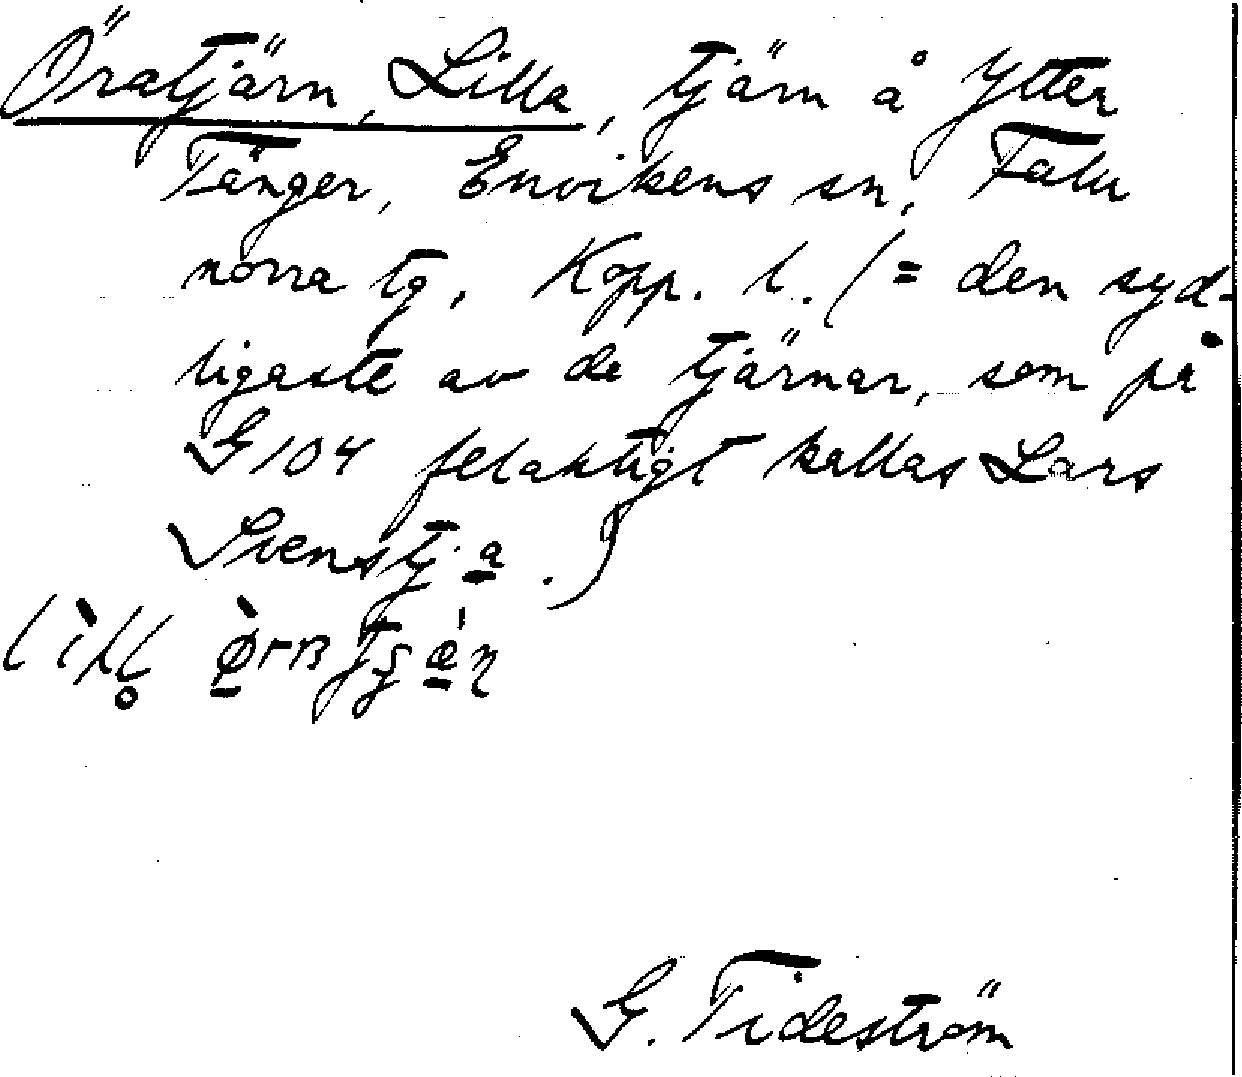 Öratjärn, Lilla, tjärn å Ytter
Tänger, Envikens sn, Falu
norra tg, Kopp. l. (= den syd-
ligaste av de tjärnar, som på
G 104 felaktigt kallas Lars
Svenstj:a.)
G. Tideström